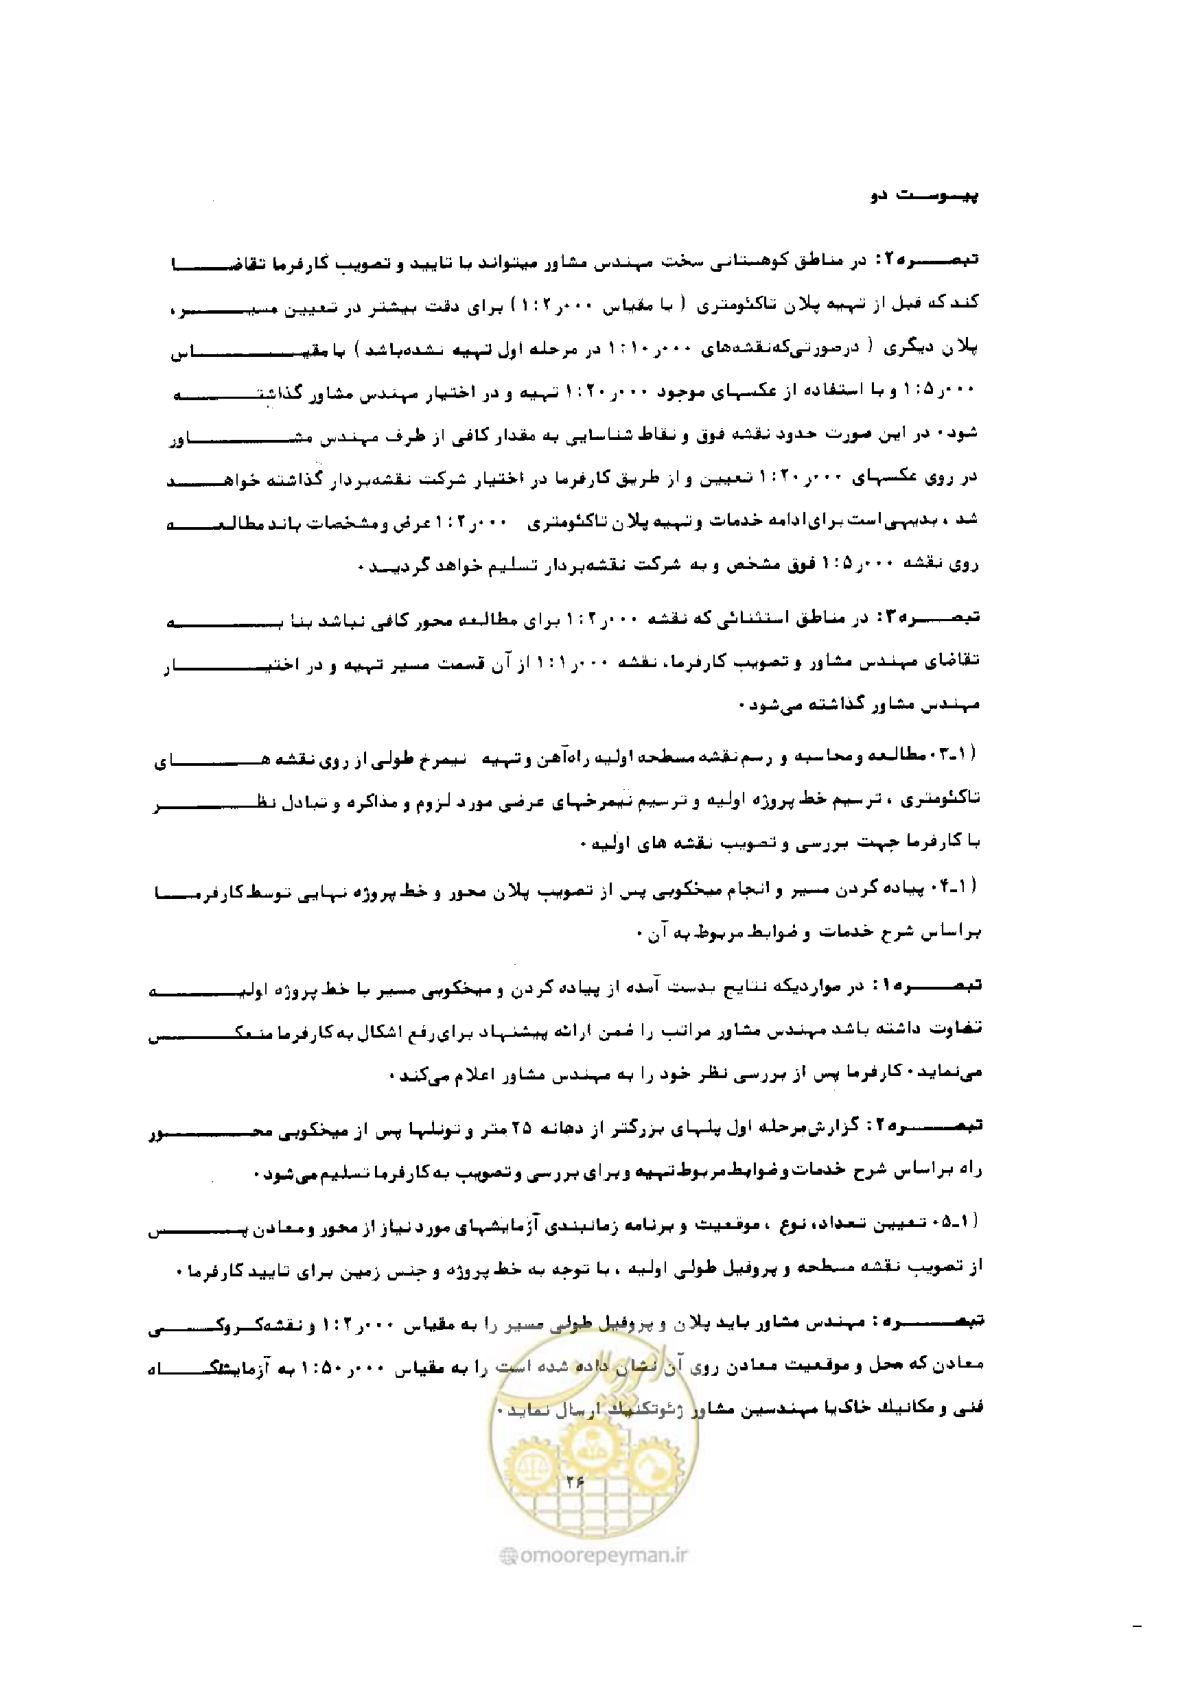 پیوست دو
تبصره۲: در مناطق کوهستانی سخت مهندس مشاور میتواند با تایید و تصویب کارفرما تقاضا
کند که قبل از تهیه پلان تاکئومتری ( با مقیاس ۰۰۰ر۱:۲) برای دقت بیشتر در تعیین مسیر،
پلان دیگری ( درصورتی‌که‌نقشه‌های ۰۰۰ر۱:۱۰ در مرحله اول تهیه نشده‌باشد) با مقیاس
۰۰۰ر۱:۵ و با استفاده از عکسهای موجود ۰۰۰ر۱:۲۰ تهیه و در اختیار مهندس مشاور گذاشته
شود۰ در این صورت حدود نقشه فوق و نقاط شناسایی به مقدار کافی از طرف مهندس مشاور
در روی عکسهای ۰۰۰ر۱:۲۰ تعیین و از طریق کارفرما در اختیار شرکت نقشه‌بردار گذاشته خواهد
شد ، بدیهی‌است برای‌ادامه خدمات و تهیه پلان تاکئومتری ۰۰۰ر۱:۲ عرض و مشخصات باند مطالعه
روی نقشه ۰۰۰ر۱:۵ فوق مشخص و به شرکت نقشه‌بردار تسلیم خواهد گردید۰
تبصره۳: در مناطق استثنائی که نقشه ۰۰۰ر۱:۲ برای مطالعه محور کافی نباشد بنا به
تقاضای مهندس مشاور و تصویب کارفرما، نقشه ۰۰۰ر۱:۱ از آن قسمت مسیر تهیه و در اختیار
مهندس مشاور گذاشته می‌شود۰
(۱ـ۰۳ مطالعه و محاسبه و رسم نقشه مسطحه اولیه راه‌آهن و تهیه نیمرخ طولی از روی نقشه های
تاکئومتری ، ترسیم خط پروژه اولیه و ترسیم نیمرخهای عرضی مورد لزوم و مذاکره و تبادل نظر
با کارفرما جهت بررسی و تصویب نقشه های اولیه ۰
(۱ـ۰۴ پیاده کردن مسیر و انجام میخکوبی پس از تصویب پلان محور و خط پروژه نهایی توسط کارفرما
براساس شرح خدمات و ضوابط مربوط به آن ۰
تبصره۱: در مواردیکه نتایج بدست آمده از پیاده کردن و میخکوبی مسیر با خط پروژه اولیه
تفاوت داشته باشد مهندس مشاور مراتب را ضمن ارائه پیشنهاد برای رفع اشکال به کارفرما منعکس
می‌نماید۰ کارفرما پس از بررسی نظر خود را به مهندس مشاور اعلام می‌کند۰
تبصره۲: گزارش‌مرحله اول پلهای بزرگتر از دهانه ۲۵ متر و تونلها پس از میخکوبی محور
راه براساس شرح خدمات و ضوابط مربوط تهیه و برای بررسی و تصویب به کارفرما تسلیم می‌شود۰
(۱ـ۰۵ تعیین تعداد، نوع ، موقعیت و برنامه زمانبندی آزمایشهای مورد نیاز از محور و معادن پس
از تصویب نقشه مسطحه و پروفیل طولی اولیه ، با توجه به خط پروژه و جنس زمین برای تایید کارفرما۰
تبصره: مهندس مشاور باید پلان و پروفیل طولی مسیر را به مقیاس ۰۰۰ر۱:۲ و نقشه‌کروکی
معادن که محل و موقعیت معادن روی آن نشان داده شده است را به مقیاس ۰۰۰ر۱:۵۰ به آزمایشگاه
فنی و مکانیك خاک‌یا مهندسین مشاور ژئوتکنیك ارسال نماید۰
امور پیمان
۲۶
@omoorepeyman.ir